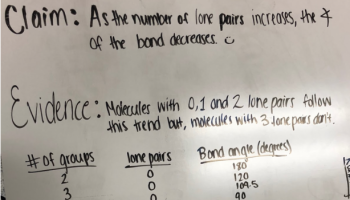 Claim: As the number of lone pairs increases, the ∡
of the bond decreases.
Evidence: Molecules with 0,1 and 2 lone pairs follow
this trend but, molecules with 3 lone pairs don't.
# of groups lone pairs Bond angle (degrees)
2 0 180
3 0 120
0 109.5
90